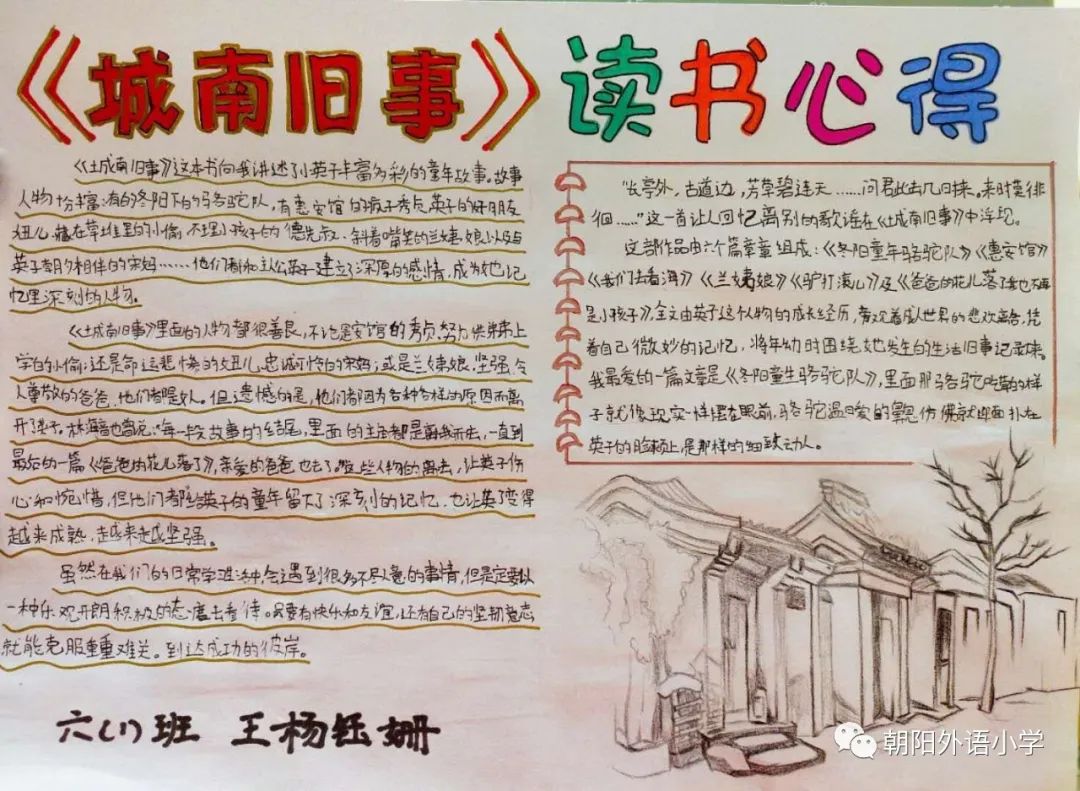 《城南旧事》读书心得
《城南旧事》这本书向我讲述了小英子丰富多彩的童年故事。故事
人物十分丰富:有的冬阳下的骆驼队,有惠安馆的疯子秀贞,英子的好朋友
妞儿,藏在草堆里的小偷,不理小孩子的德先叔,斜着嘴笑的兰姨娘以及与
英子朝夕相伴的宋妈……他们都和主人公英子建立了深厚的感情,成为她记
忆里深刻的人物。
《城南旧事》里面的人物都很善良,不论是安馆的秀贞,努力供弟弟上
学的小偷;还是命运悲惨的妞儿,忠诚可怜的宋妈;或是兰姨娘,坚强令
人尊敬的爸爸,他们都是好人。但遗憾的是,他们都因为各种各样的原因而离
开了英子。林海音也曾说:“每一段故事的结尾,里面的主角都是离我而去,一直到
最后的一篇《爸爸的花儿落了》,亲爱的爸爸也去了。”这些人物的离去,让英子伤
心和惋惜,但他们都给英子的童年留下了深刻的记忆,也让英子变得
越来越成熟,越来越坚强。
虽然在我们的日常学习生活中,会遇到很多不尽人意的事情,但是一定要以
一种乐观开朗积极的态度去看待。只要有快乐和友谊,还有自己的坚韧意志
就能克服重重难关。到达成功的彼岸。
六(1)班 王杨钰姗
“长亭外,古道边,芳草碧连天……问君此去几归来。来时莫徘
徊……”这一首让人回忆离别的歌谣在《城南旧事》中浮现。
这部作品由六个篇章组成:《冬阳童年骆驼队》《惠安馆》
《我们去看海》《兰姨娘》《驴打滚儿》及《爸爸的花儿落了我也不再
是小孩子》,全文由英子这个人物的成长经历,旁观着成人世界的悲欢离合,凭
着自己微妙的记忆,将年幼时围绕她发生的生活旧事记录来。
我最爱的一篇文章是《冬阳童年骆驼队》,里面那骆驼吃草的样
子就像现实一样摆在眼前,骆驼温暖的鼻息仿佛就迎面扑在
英子的脸颊上,是那样的细致动人。
朝阳外语小学